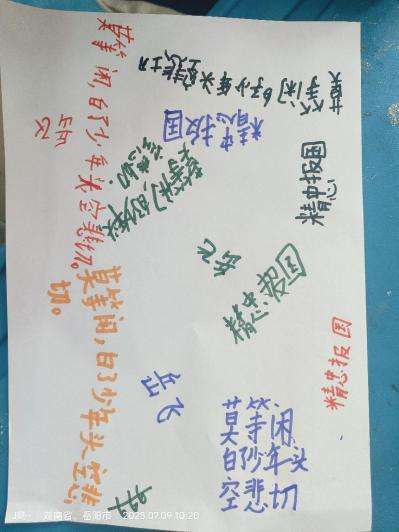 莫等闲,白了少年头,空悲切。
岳飞
莫等闲白了少年头空悲切
精忠报国
精忠报国
莫等闲白了少年头
空悲切
岳飞
精忠报国
精忠报国
莫等闲,白了少年头,空悲
切。
岳飞
莫等闲
白了少年头
空悲切
湖南省、岳阳市 2023.07.09 10:20